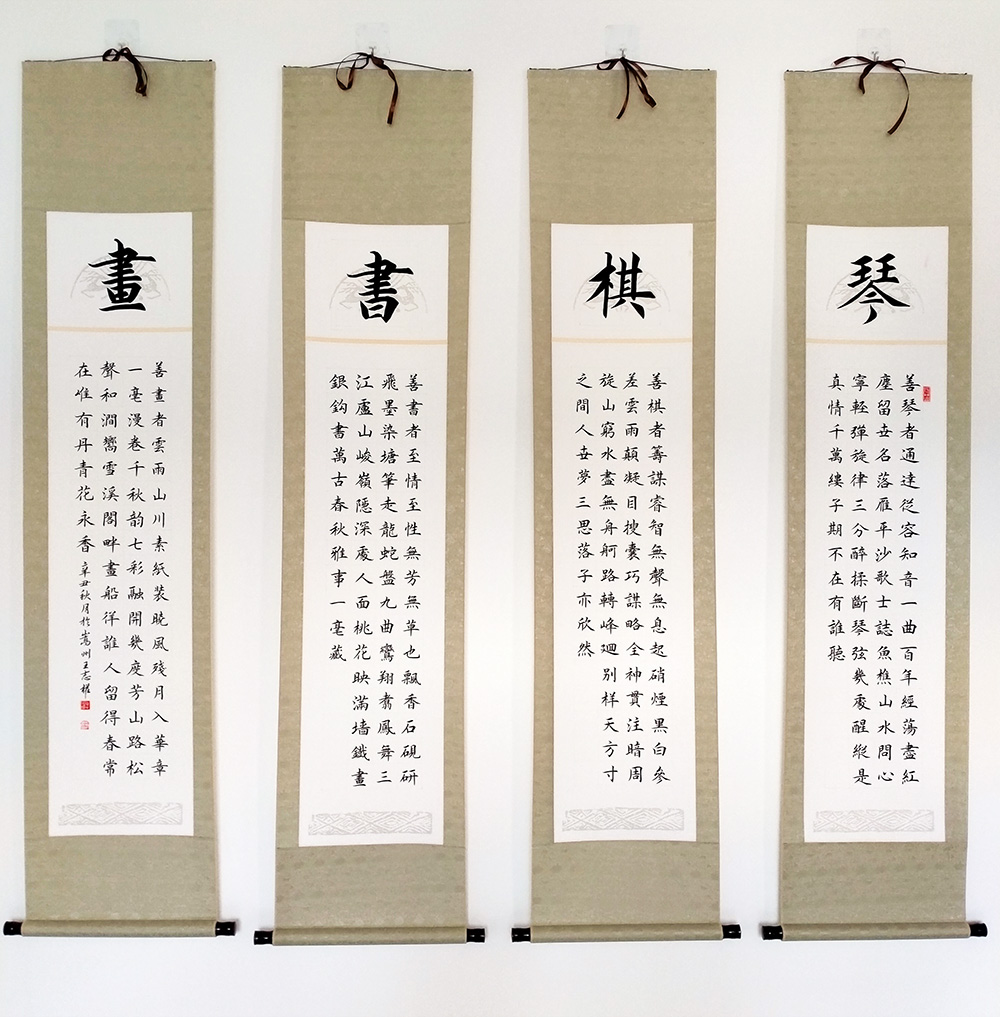 琴
善琴者通达從容知音一曲百年經蕩盡紅
塵留世名落雁平沙歌士誌魚樵山水問心
寧輕彈旋律三分醉揉斷琴弦幾處醒縱是
真情千萬縷子期不在有誰聽
棋
善棋者籌謀睿智無聲無息起硝煙黑白參
差雲雨顛凝目搜囊巧謀略全神貫注暗周
旋山窮水盡無舟舸路轉峰迴別样天方寸
之間人世夢三思落子亦欣然
書
善書者至情至性無芳無草也飄香石硯研
飛墨染塘筆走龍蛇盤九曲鸞翔翥鳳舞三
江廬山峻嶺隱深處人面桃花映滿墙鐵畫
銀鈎書萬古春秋雅事一毫藏
畫
善畫者雲雨山川素紙装曉風殘月入華章
一毫漫卷千秋韵七彩融開幾度芳山路松
聲和澗嚮雪溪閣畔畫船徉誰人留得春常
在唯有丹青花永香
辛丑秋月於嵩州王志耀